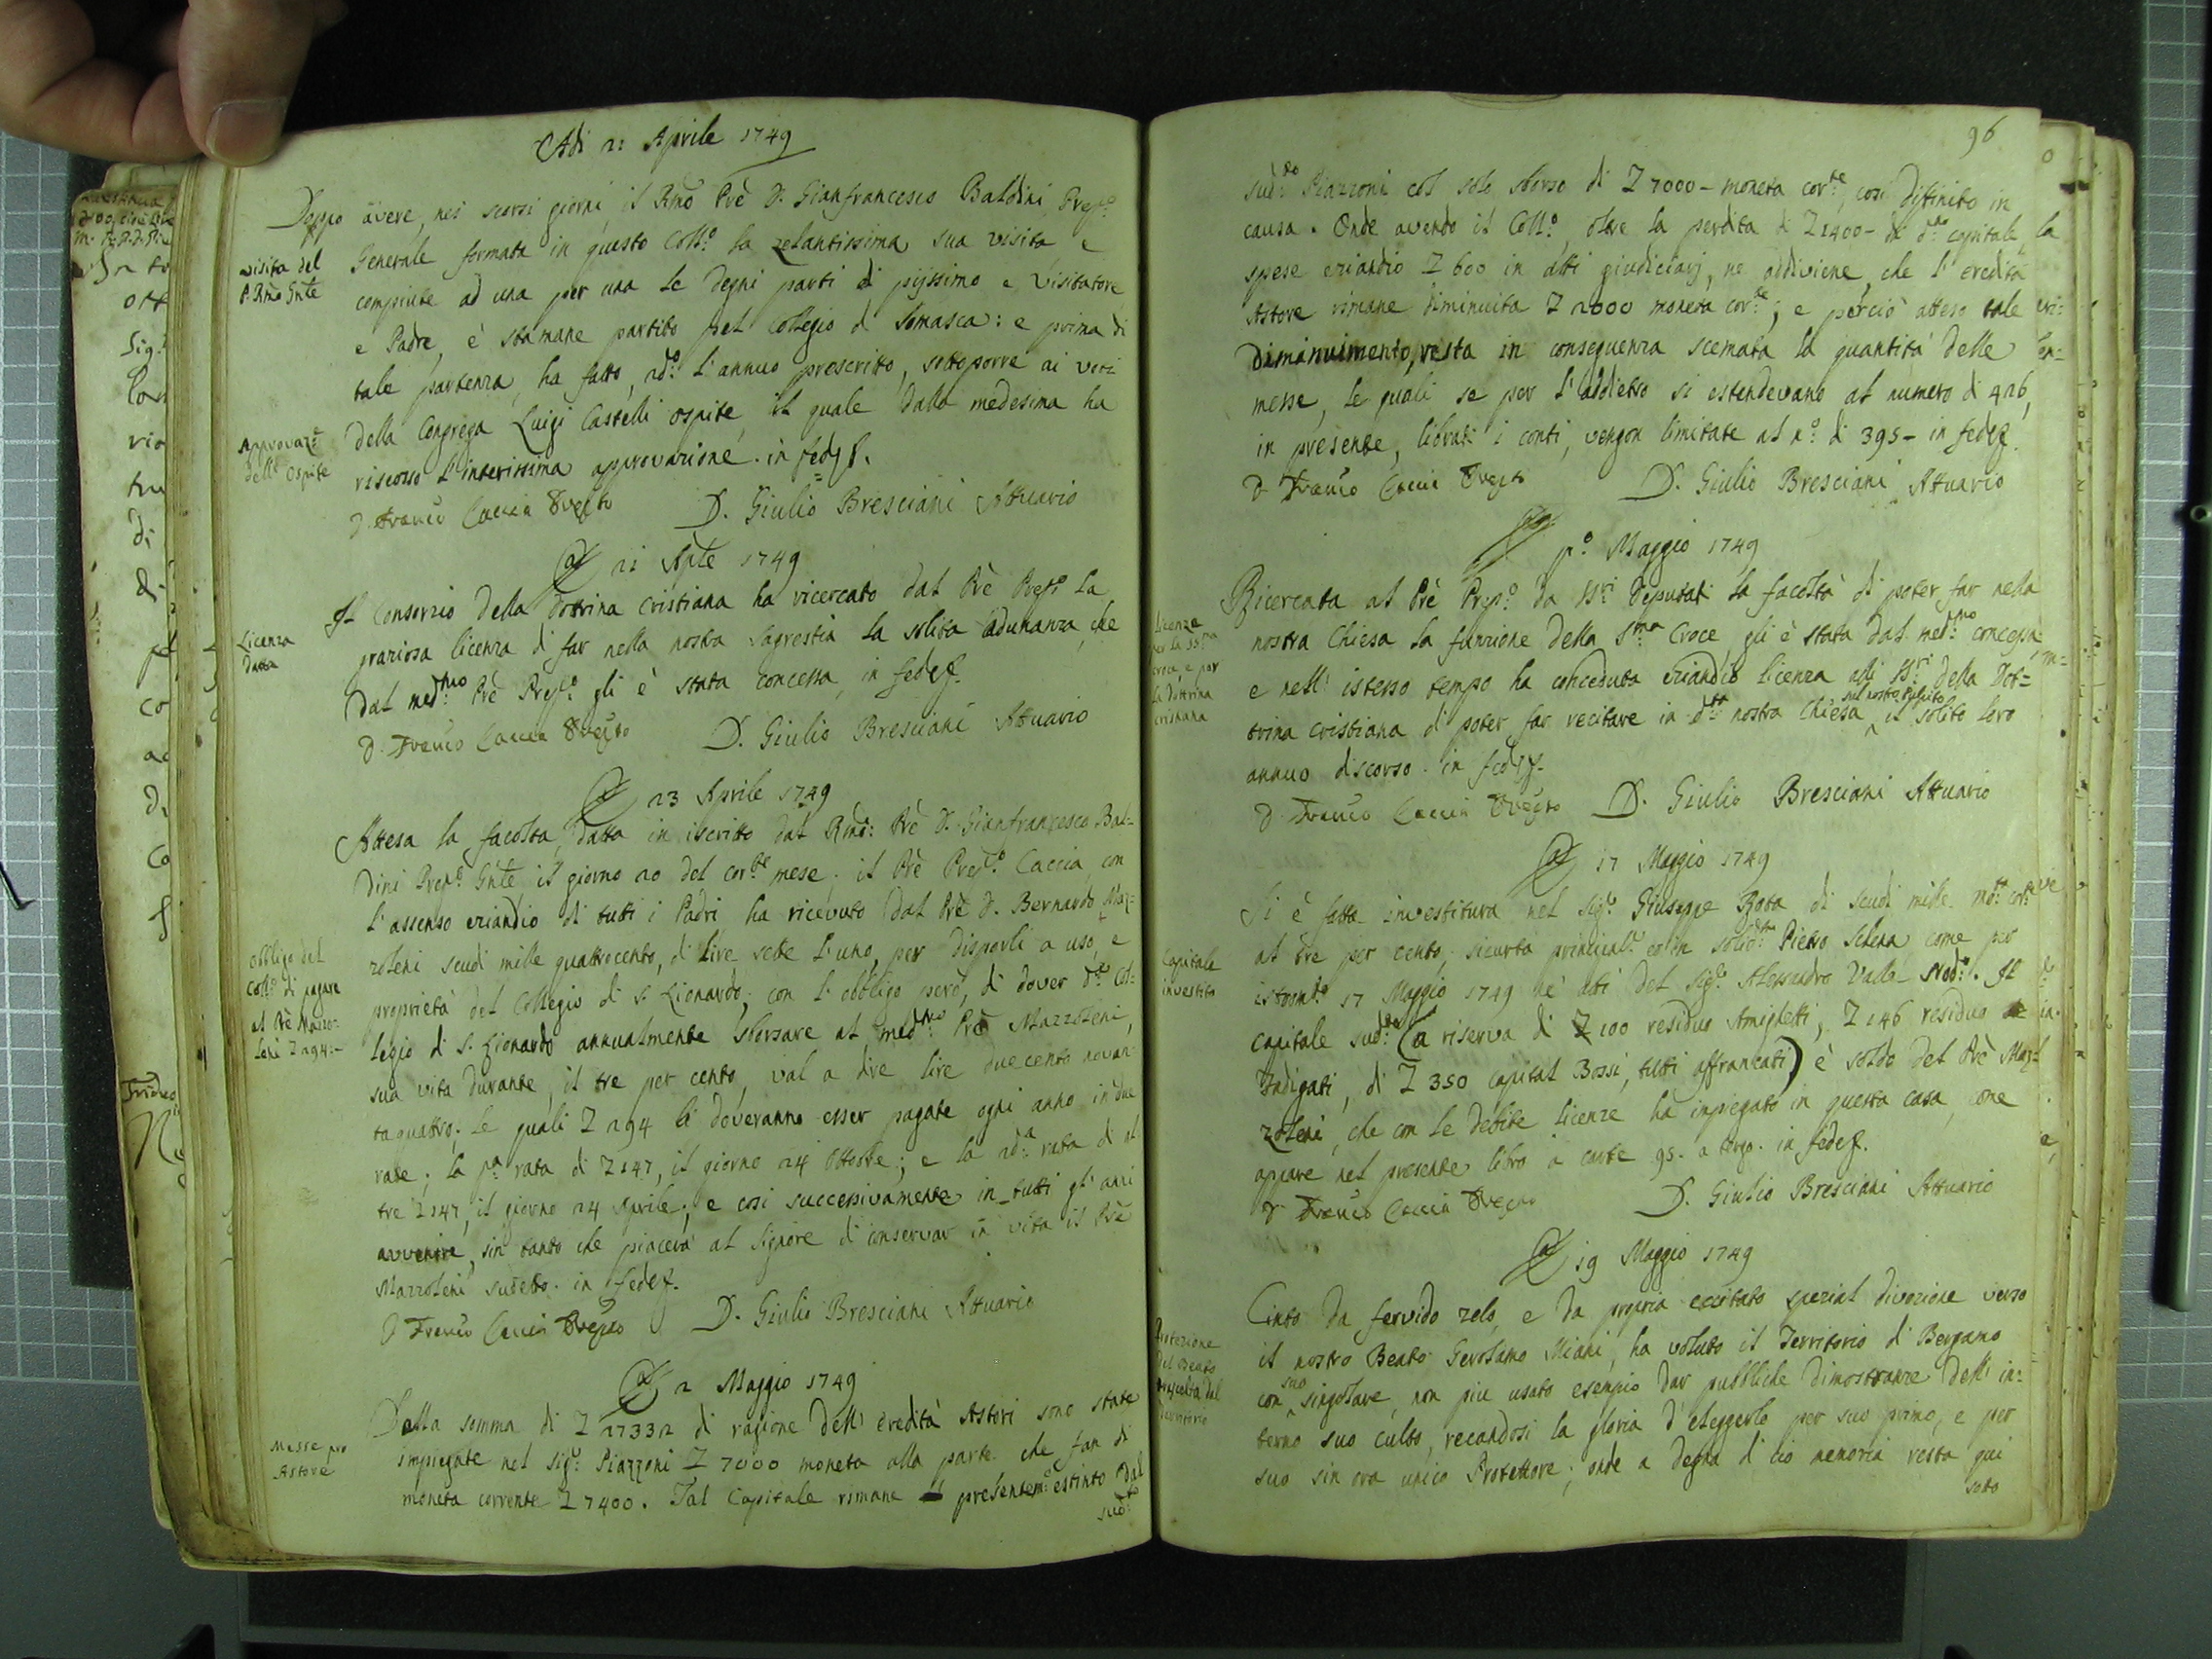 Adi 21 Aprile 1749
Doppo avere, nei scorsi giorni, il Rmo Prè D. Gianfrancesco Baldini Prepto
Generale formata in questo Collo la zelantissima sua visita e
visita del
P. Rmo Gnle
compiute ad una per una le degni parti di pijssimo e Visitatore
e Padre, è stamane partito pel Collegio di Somasca: e prima di
tale partenza, ha fatto, 2do l'annuo prescritto, sottoporre ai voti
della Congrega Luigi Castelli ospite, il quale dalla medesima ha
Approvaze
dell' Ospite
riscosso l'interissima approvazione. in fede
D. Franco Caccia Prepto D. Giulio Bresciani Attuario
Adi 21 Aple 1749
Il Consorzio della dottrina cristiana ha ricercato dal Prè Prepto la
Licenza
data
graziosa licenza di far nella nostra Sagrestia la solita adunanza, che
dal medmo Prè Prepto gli è stata concessa, in fede
D. Franco Caccia Prepto D. Giulio Bresciani Attuario
Adi 23 Aprile 1749
Attesa la facoltà, datta in iscritto dal Rmo: Prè D. Gianfrancesco Bal=
dini Prepo Gnle il giorno 20 del corte mese, il Prè Prepto Caccia, con
l'assenso eziandio di tutti i Padri ha ricevuto dal Prè D. Bernardo Maz=
zoleni scudi mille quattrocento, di lire sette l'uno, per disporli a uso, e
obbligo del
Collo di pagare
al Prè Mazzo=
leni L 294:-
proprietà del Collegio di S. Lionardo; con l'obbligo però, di dover dto Col=
legio di S. Lionardo annualmente sborsare al medmo Prè Mazzoleni,
sua vita durante, il tre per cento, val a dire lire duecento novan=
taquattro. Le quali L 294 li doveranno esser pagate ogni anno in due
rate; la pa rata di L 147, il giorno 24 Ottobre; e la 2da rata di al=
tre L 147, il giorno 24 Aprile; e così successivamente in tutti gl'anni
avvenire, sin tanto che piacerà al Signore di conservar in vita il Prè
Mazzoleni sudetto. in fede
D Franco Caccia Prepto D. Giulio Bresciani Attuario
Adi 2 Maggio 1749
Dalla somma di L 27332 di ragione dell' eredità Astori sono state
Messe pro
Astore
impiegate nel Sigr Piazzoni L 7000 moneta alla parte che fan di
moneta corrente L 7400. Tal Capitale rimane presenteme estinto dal
sudto
96
sudto Piazzoni col solo sborso di L 7000 - moneta corte, così difinito in
causa. Onde avendo il Collo, oltre la perdita di L 1400 - di dto capitale, la
spese eziandio L 600 in atti giudiciarj, ne addiviene, che l'eredità
Astore rimane diminuita L 2000 moneta corte; e perciò atteso tale
diminuimento, resta in conseguenza scemata la quantità delle
messe, le quali se per l'addietro si estendevano al numero di 426,
in presente, librati i conti, vengon limitate al no di 395 - in fede
D Franco Caccia Prepto D. Giulio Bresciani Attuario
Adi po Maggio 1749
Ricercata al Prè Prepo da SSri Deputati la facoltà di poter far nella
Licenze
per la SSma
croce, e per
la dottrina
cristiana
nostra Chiesa la funzione della Sma Croce, gli è stata dal medmo concessa,
e nell' istesso tempo ha conceduta eziandio licenza alli SSri della Dot=
trina cristiana di poter far recitare in dta nostra Chiesa sul nostro pulpito il solito loro
annuo discorso. in fede
D. Franco Caccia Prepto D. Giulio Bresciani Attuario
Adi 17 Maggio 1749
Si è fatta investitura nel Sigr Giuseppe Rota di scudi mille mta corte
Capitale
investito
al tre per cento, sicurtà principale ed in solidm Pietro Selera, come per
istromto 17 Maggio 1749 ne' atti del Sigr Alessandro Valle Nodo. Il
capitale sudto (a riserva di L 100 residuo Amighetti, L 146 residuo
Fadigati, di L 350 capital Bossi, tutti affrancati) è soldo del Prè Maz=
zoleni, che con le debite licenze ha inpiegato in questa casa, come
appare nel presente libro à carte 95. a tergo. in fede
D. Franco Caccia Prepto D. Giulio Bresciani Attuario
Adi 19 Maggio 1749
Cinto da fervido zelo, e da propria eccitato spezial divozione verso
Protezione
del Beato
prescelta dal
Territorio
il nostro Beato Gerolamo Miani, ha voluto il Territorio di Bergamo
con suo singolare, non più usato esempio dar pubbliche dimostranze dell' in=
terno suo culto, recandosi la gloria d'eleggerlo per suo primo, e per
suo sin ora unico Protettore; onde a degna di ciò memoria resta qui
sotto